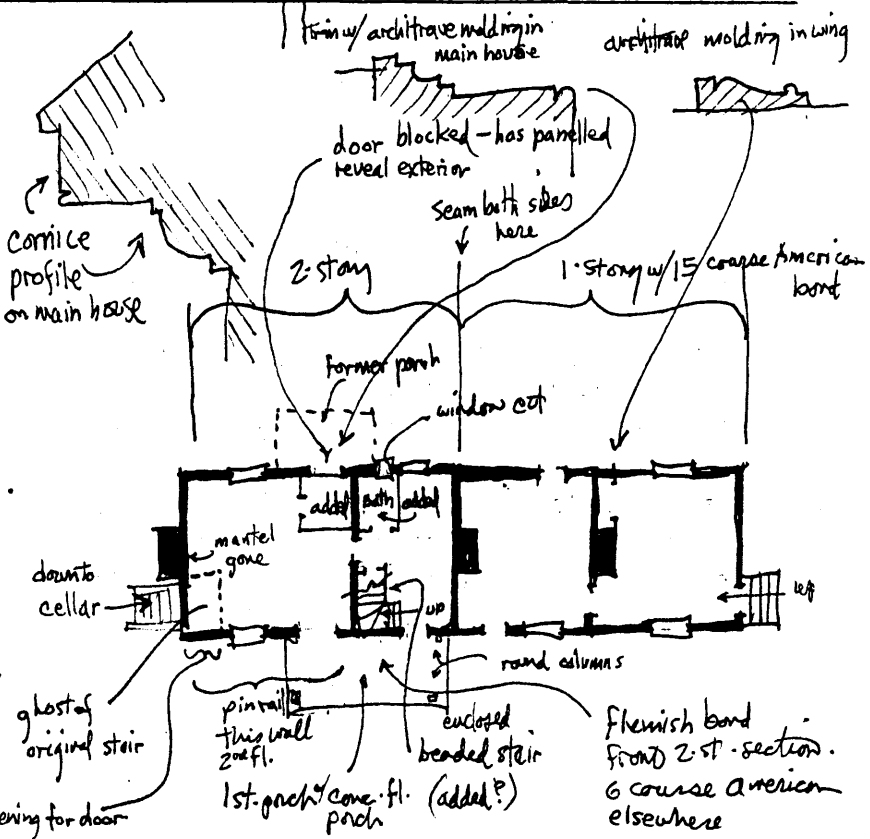 trim w/ architrave molding in
main house
architrave molding in wing
door blocked - has panelled
reveal exterior
seam both sides
here
cornice
profile
on main house
2-story
1-story w/ 15 course American
bond
former porch
window cut
added
bath
added
mantel
gone
down to
cellar
up
up
round columns
ghost of
original stair
pin rail
this wall
2nd fl.
enclosed
beaded stair
(added?)
1st. porch
conc. fl.
porch
Flemish bond
front 2-st. section.
6 course American
elsewhere
ening for door